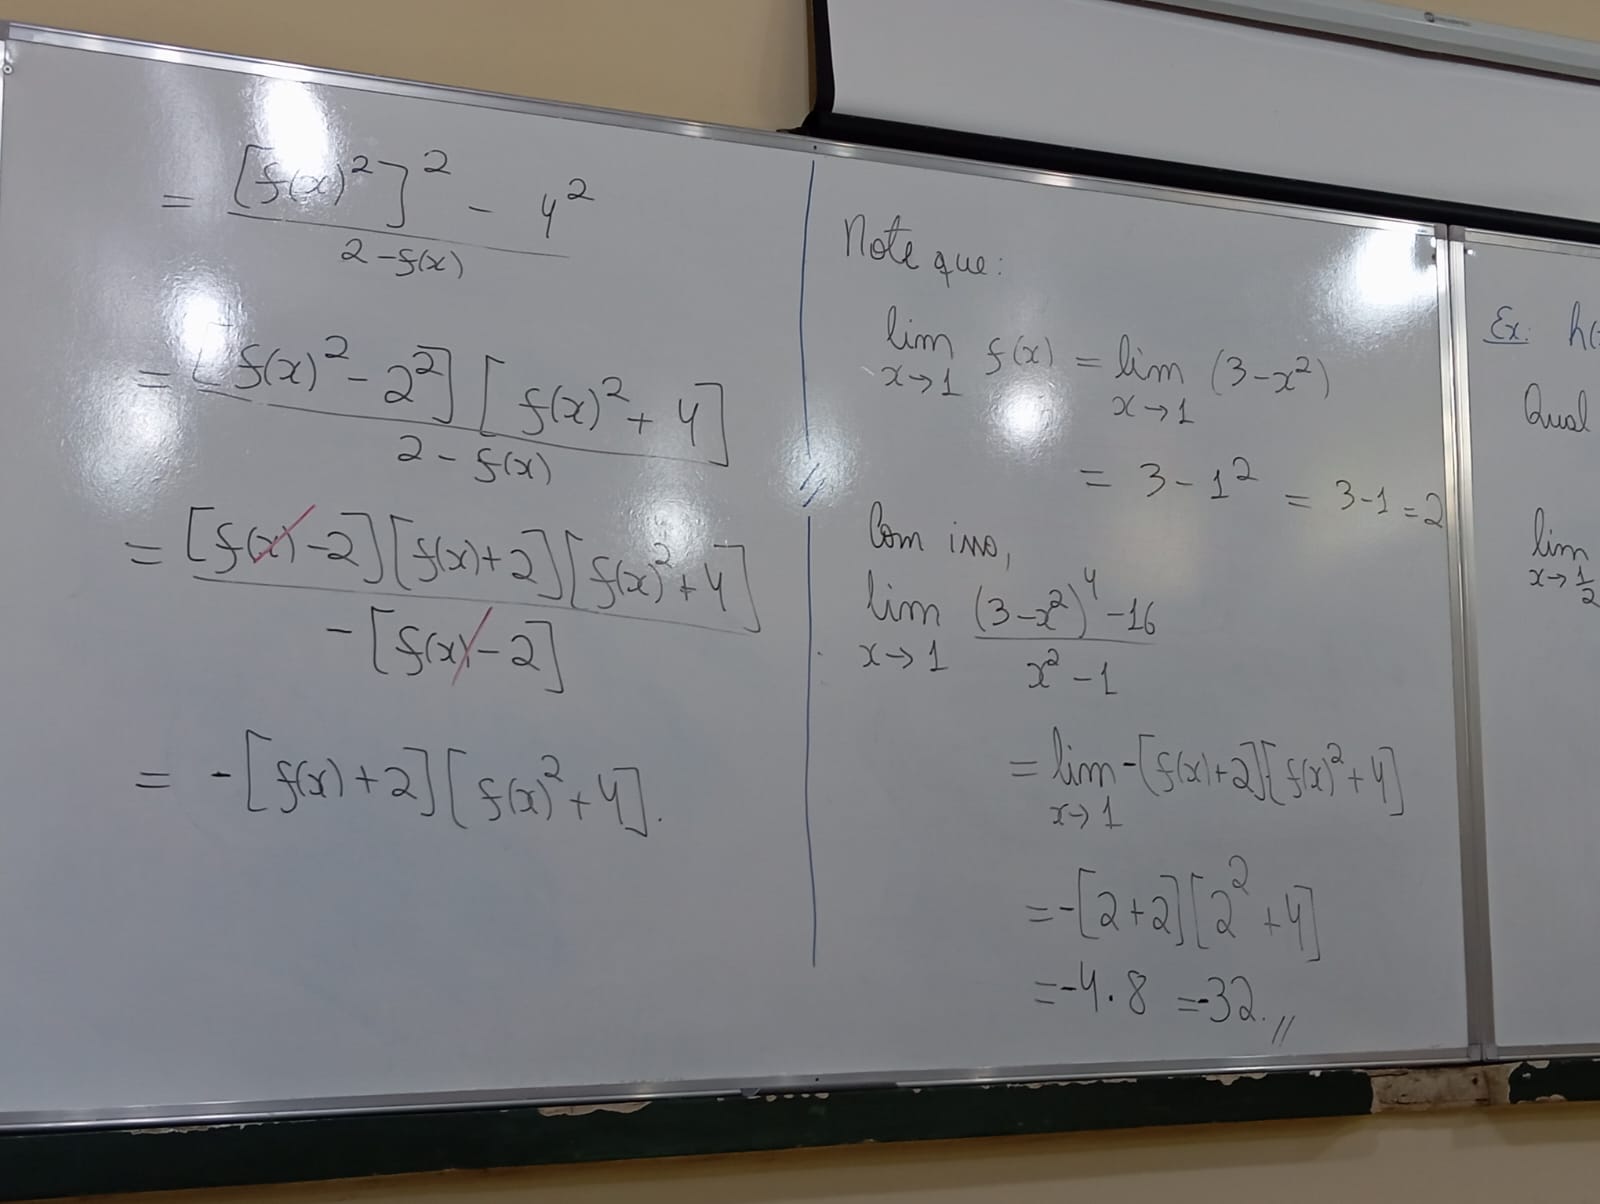 = [f(x)²]² - 4²
2-f(x)
= [f(x)² - 2²] [f(x)² + 4]
2 - f(x)
= [f(x) - 2][f(x)+2][f(x)²+4]
-[f(x) - 2]
= -[f(x)+2][f(x)²+4].
Note que:
lim f(x) = lim (3-x²)
x→1 x→1
= 3 - 1² = 3-1 = 2
Com isso,
lim (3-x²)⁴ - 16
x→1 x² - 1
= lim -[f(x)+2][f(x)²+4]
x→1
= -[2+2][2²+4]
= -4.8 = -32.//
Ex: h(
Qual
lim
x→1/2